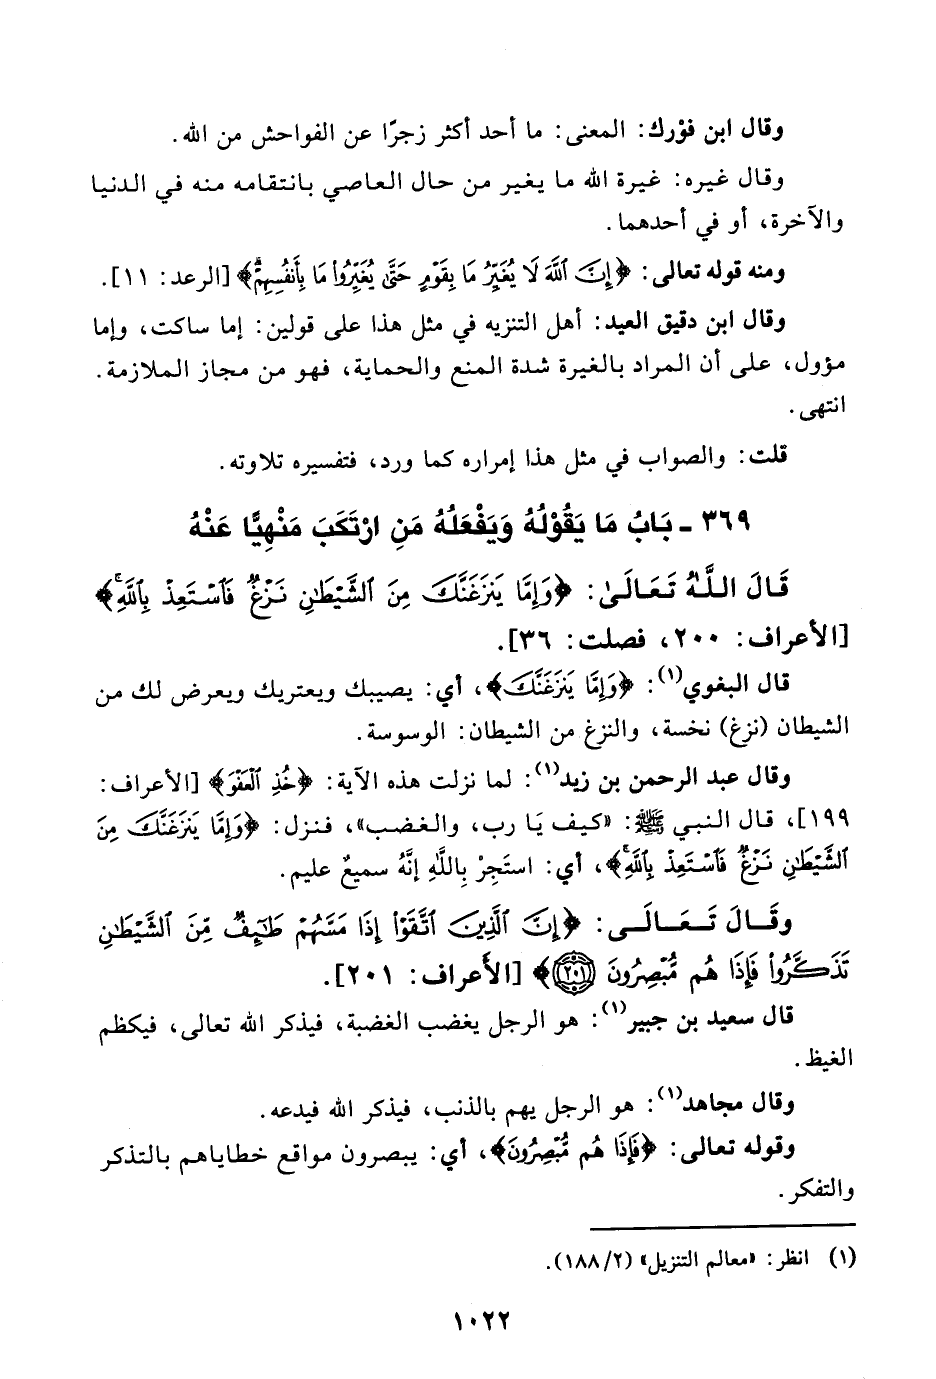 وقال ابن فوْرك: المعنى: ما أحد أكثر زجرًا عن الفواحش من الله.
وقال غيره: غيرة الله ما يغير من حال العاصي بانتقامه منه في الدنيا
والآخرة، أو في أحدهما.
ومنه قوله تعالى: ﴿إِنَّ ٱللَّهَ لَا يُغَيِّرُ مَا بِقَوْمٍ حَتَّىٰ يُغَيِّرُوا۟ مَا بِأَنفُسِهِمْۗ﴾ [الرعد: ١١].
وقال ابن دقيق العيد: أهل التنزيه في مثل هذا على قولين: إما ساكت، وإما
مؤول، على أن المراد بالغيرة شدة المنع والحماية، فهو من مجاز الملازمة.
انتهى.
قلت: والصواب في مثل هذا إمراره كما ورد، فتفسيره تلاوته.
٣٦٩ ـ بَابُ مَا يَقُوْلُهُ وَيَفْعَلُهُ مَنِ ارْتَكَبَ مَنْهِيًّا عَنْهُ
قَالَ اللَّهُ تَعَالَىٰ: ﴿وَإِمَّا يَنزَغَنَّكَ مِنَ ٱلشَّيْطَٰنِ نَزْغٌ فَٱسْتَعِذْ بِٱللَّهِۚ﴾
[الأعراف: ٢٠٠، فصلت: ٣٦].
قال البغوي(١): ﴿وَإِمَّا يَنزَغَنَّكَ﴾، أي: يصيبك ويعتريك ويعرض لك من
الشيطان (نزغ) نخسة، والنزغ من الشيطان: الوسوسة.
وقال عبد الرحمن بن زيد(١): لما نزلت هذه الآية: ﴿خُذِ ٱلْعَفْوَ﴾ [الأعراف:
١٩٩]، قال النبي ﷺ: «كيف يَا رب، والغضب»، فنزل: ﴿وَإِمَّا يَنزَغَنَّكَ مِنَ
ٱلشَّيْطَٰنِ نَزْغٌ فَٱسْتَعِذْ بِٱللَّهِۚ﴾، أي: استَجِرْ بِاللَّهِ إنَّهُ سميعٌ عليم.
وقَــال تَـعَـالَـى: ﴿إِنَّ ٱلَّذِينَ ٱتَّقَوْا۟ إِذَا مَسَّهُمْ طَٰٓئِفٌ مِّنَ ٱلشَّيْطَٰنِ
تَذَكَّرُوا۟ فَإِذَا هُم مُّبْصِرُونَ ۝٢٠١﴾ [الأَعراف: ٢٠١].
قال سعيد بن جبير(١): هو الرجل يغضب الغضبة، فيذكر الله تعالى، فيكظم
الغيظ.
وقال مجاهد(١): هو الرجل يهم بالذنب، فيذكر الله فيدعه.
وقوله تعالى: ﴿فَإِذَا هُم مُّبْصِرُونَ﴾، أي: يبصرون مواقع خطاياهم بالتذكر
والتفكر.
(١) انظر: «معالم التنزيل» (٢/١٨٨).
١٠٢٢